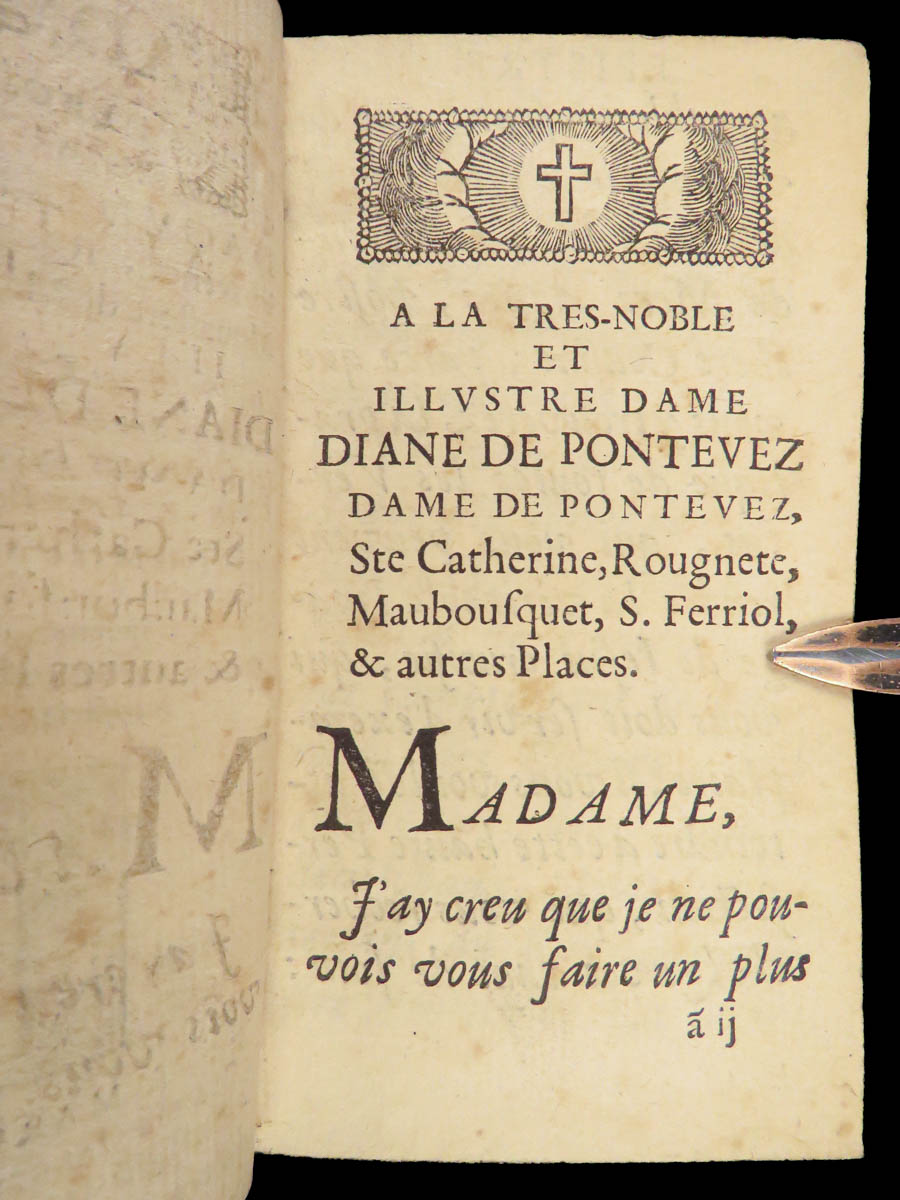 A LA TRES-NOBLE
ET
ILLVSTRE DAME
DIANE DE PONTEVEZ
DAME DE PONTEVEZ,
Ste Catherine, Rougnete,
Maubouſquet, S. Ferriol,
& autres Places.
MADAME,
J'ay creu que je ne pou-
vois vous faire un plus
ã ij